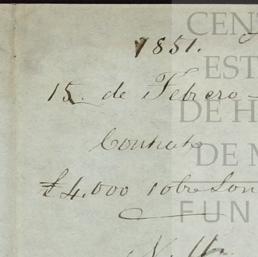 1851.
15 de Febrero
Contrato
£4.000 sobre Lon
CENT
EST
DE H
DE M
FUN